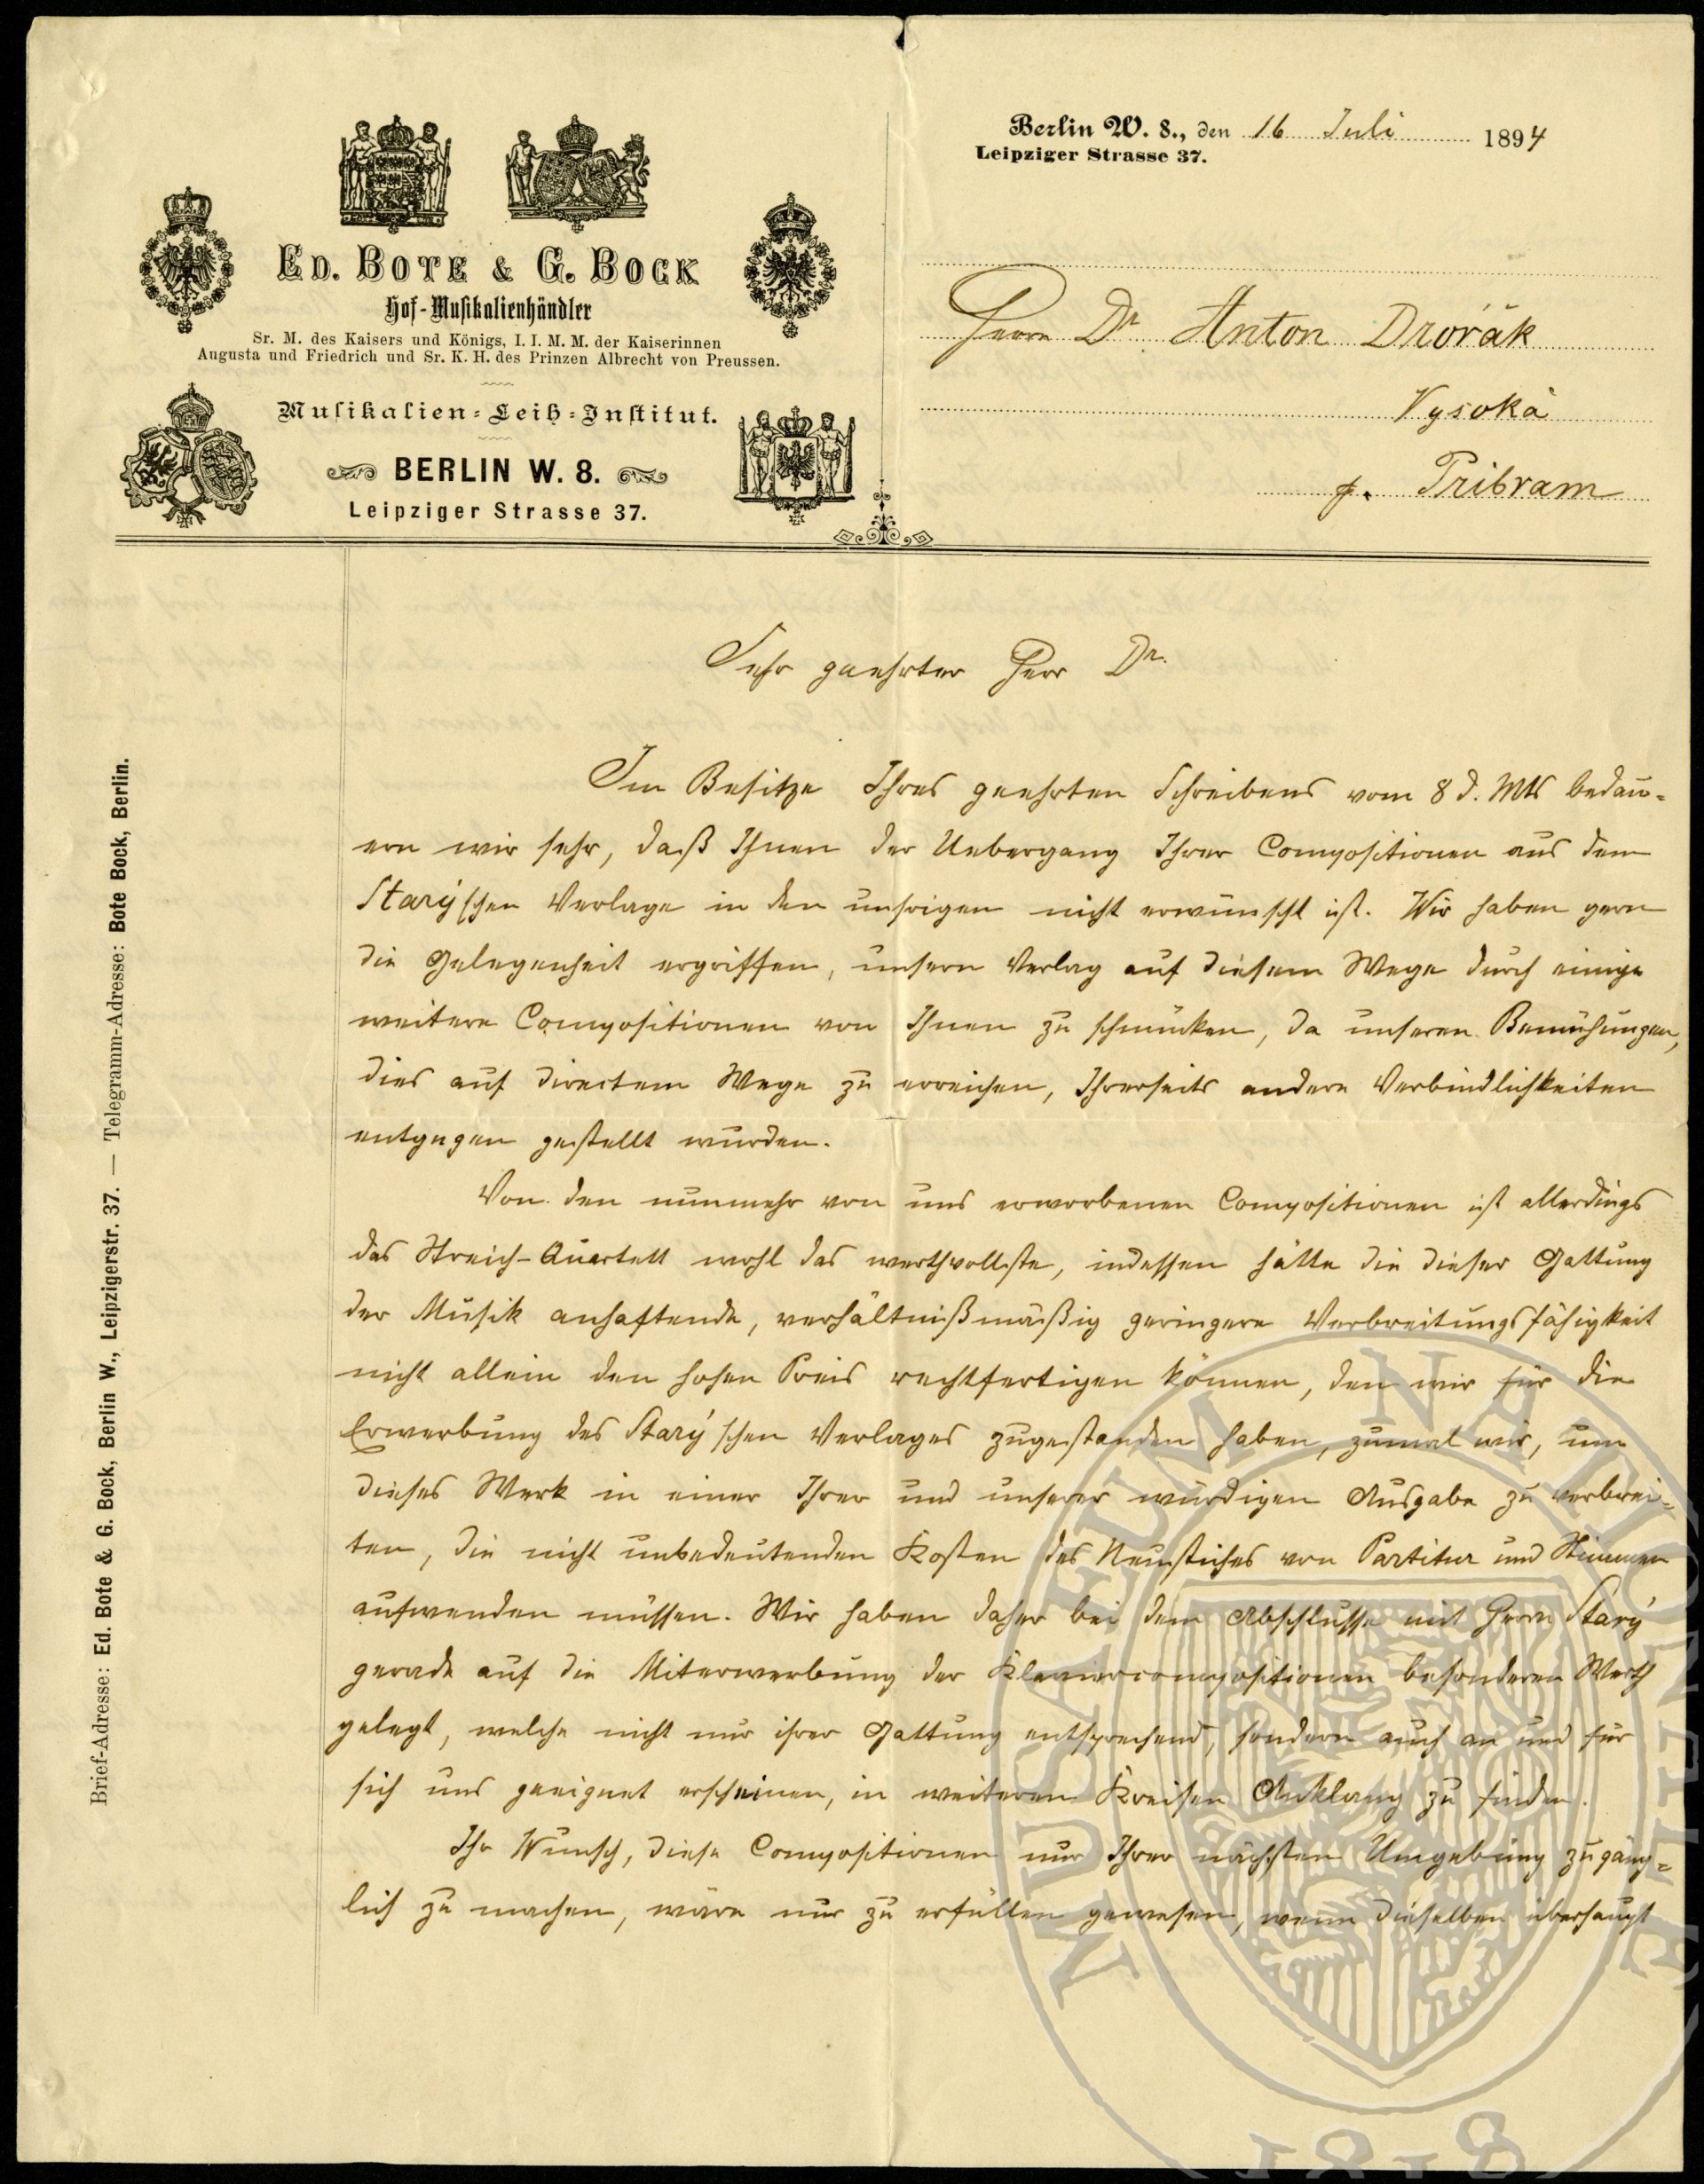 Berlin W. 8., den 16 Juli 1894
Leipziger Strasse 37.
ED. BOTE & G. BOCK
Hof-Musikalienhändler
Sr. M. des Kaisers und Königs, I. I. M. M. der Kaiserinnen
Augusta und Friedrich und Sr. K. H. des Prinzen Albrecht von Preussen.
Musikalien-Leih-Institut.
BERLIN W. 8.
Leipziger Strasse 37.
Herrn Dr Anton Dvořák
Vysoká
p. Pribram
Sehr geehrter Herr Dr.
Im Besitze Ihres geehrten Schreibens vom 8 d. Mts bedau-
ern wir sehr, daß Ihnen der Uebergang Ihrer Compositionen aus dem
Starýschen Verlage in den unsrigen nicht erwünscht ist. Wir haben gern
die Gelegenheit ergriffen, unsern Verlag auf diesem Wege durch einige
weitere Compositionen von Ihnen zu schmücken, da unseren Bemühungen,
dies auf directem Wege zu erreichen, Ihrerseits andere Verbindlichkeiten
entgegen gestellt wurden.
Von den nunmehr von uns erworbenen Compositionen ist allerdings
das Streich-Quartett wohl das werthvollste, indessen hätte die dieser Gattung
der Musik anhaftende, verhältnißmäßig geringere Verbreitungsfähigkeit
nicht allein den hohen Preis rechtfertigen können, den wir für die
Erwerbung des Starýschen Verlages zugestanden haben, zumal wir, um
dieses Werk in einer Ihrer und unserer würdigen Ausgabe zu verbrei-
ten, die nicht unbedeutenden Kosten des Neustiches von Partitur und Stimmen
aufwenden müssen. Wir haben daher bei dem Abschlusse mit Herrn Starý
gerade auf die Miterwerbung der Klaviercompositionen besonderen Werth
gelegt, welche nicht nur ihrer Gattung entsprechend, sondern auch an und für
sich uns geeignet erscheinen, in weiteren Kreisen Anklang zu finden.
Ihr Wunsch, diese Compositionen nur Ihrer nächsten Umgebung zugäng-
lich zu machen, wäre nur zu erfüllen gewesen, wenn dieselben überhaupt
Brief-Adresse: Ed. Bote & G. Bock, Berlin W., Leipzigerstr. 37. — Telegramm-Adresse: Bote Bock, Berlin.
MUSAEUM NATIONALE
1818